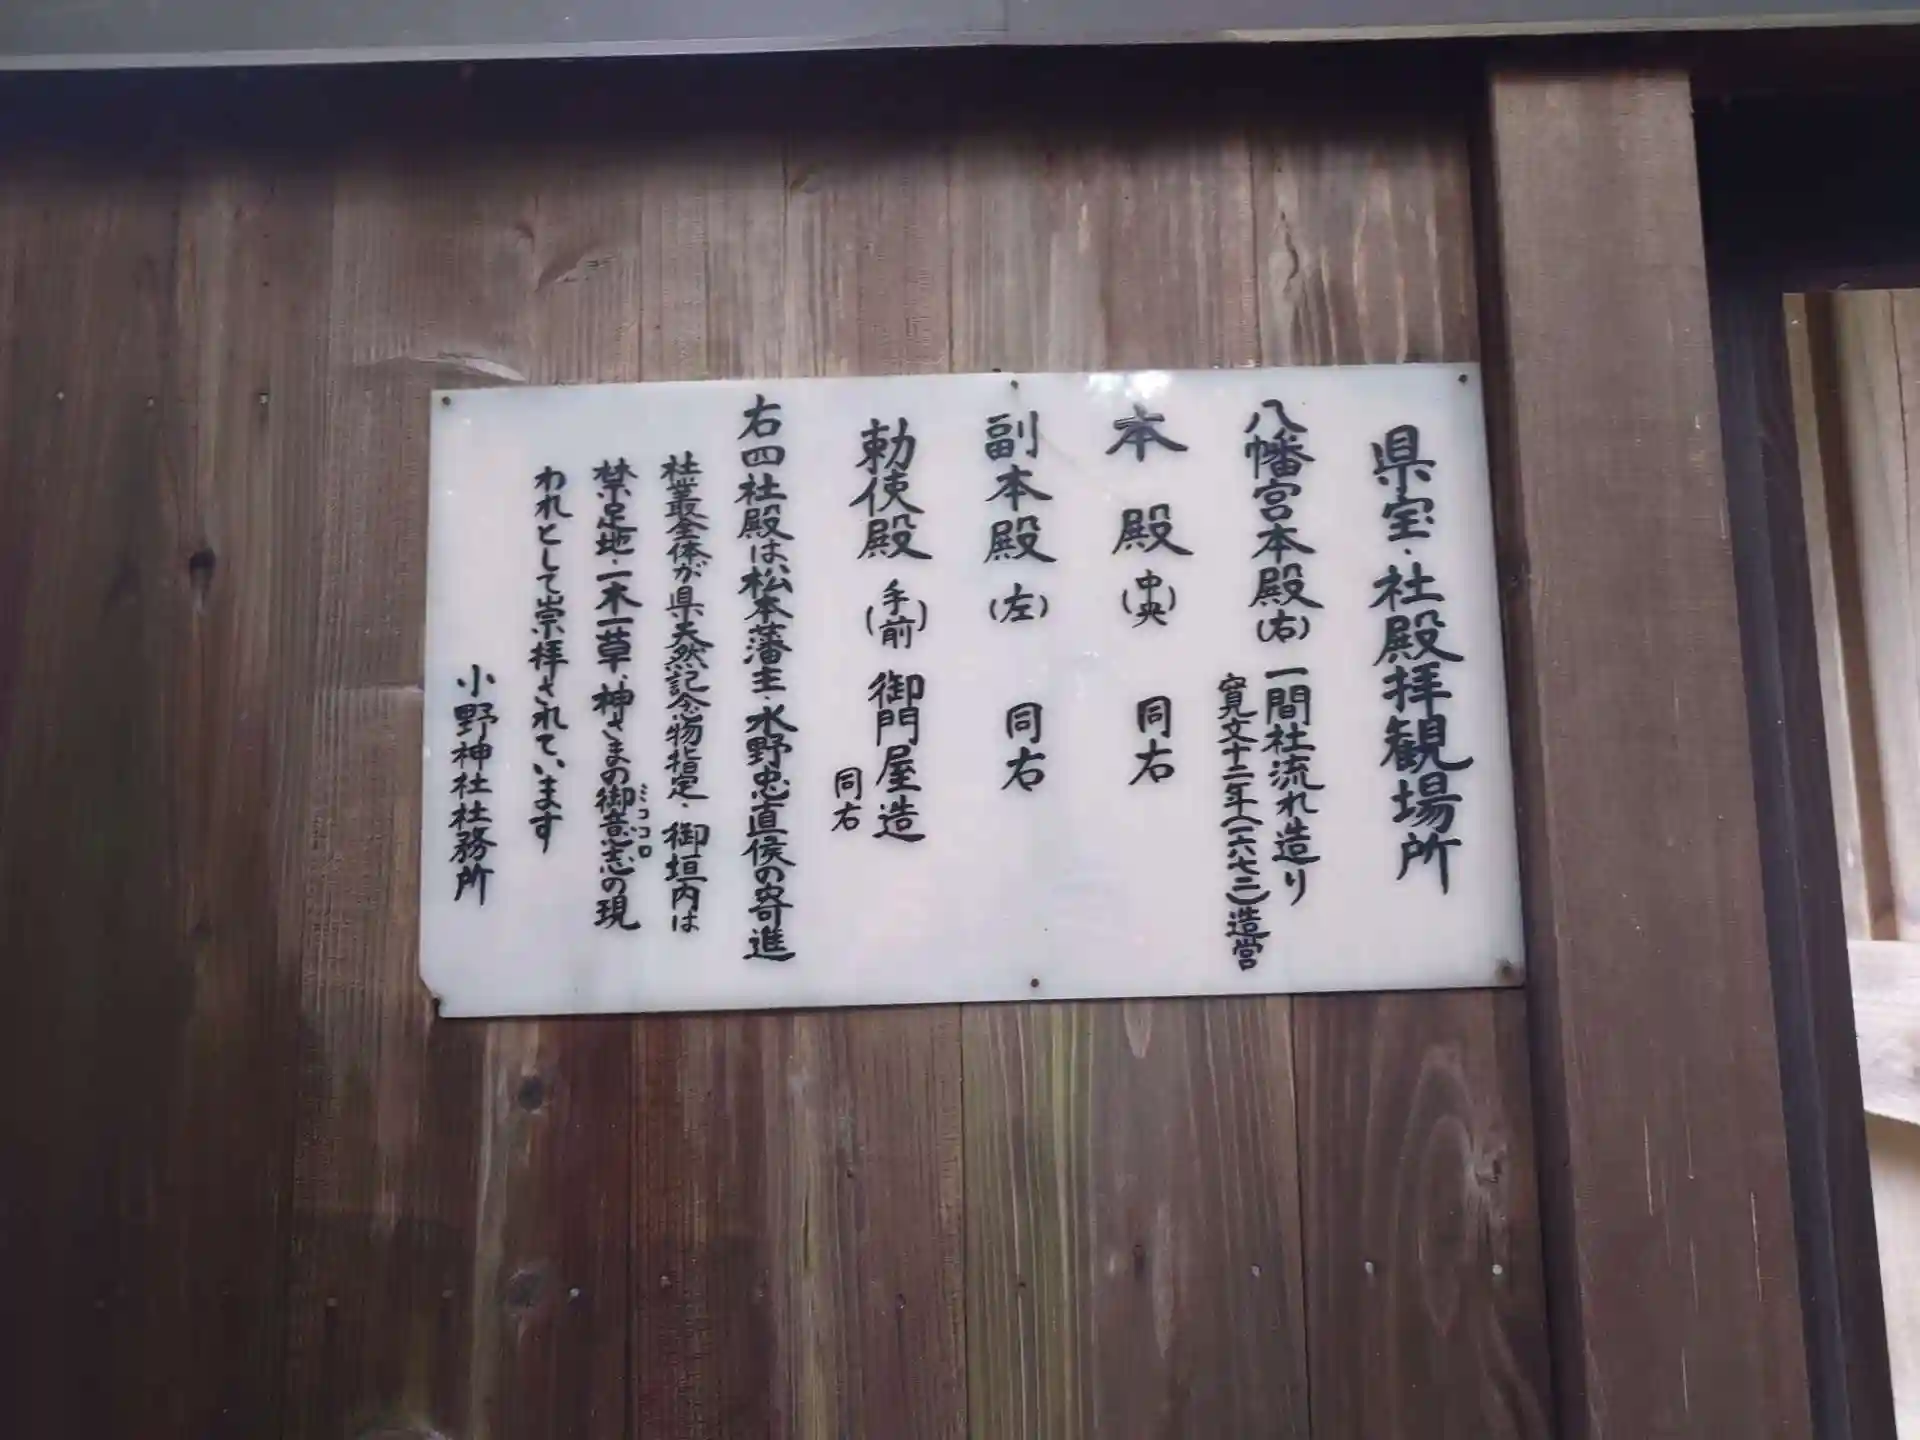 県宝・社殿拝観場所
八幡宮本殿(右) 一間社流れ造り
寛文十二年(一六七二)造営
本殿(中央) 同右
副本殿(左) 同右
勅使殿(手前) 御門屋造
同右
右四社殿は、松本藩主水野忠直侯の寄進
社叢全体が県天然記念物指定・御垣内は
禁足地・一木一草、神さまの御意志の現
ミココロ
われとして崇拝されています
小野神社社務所